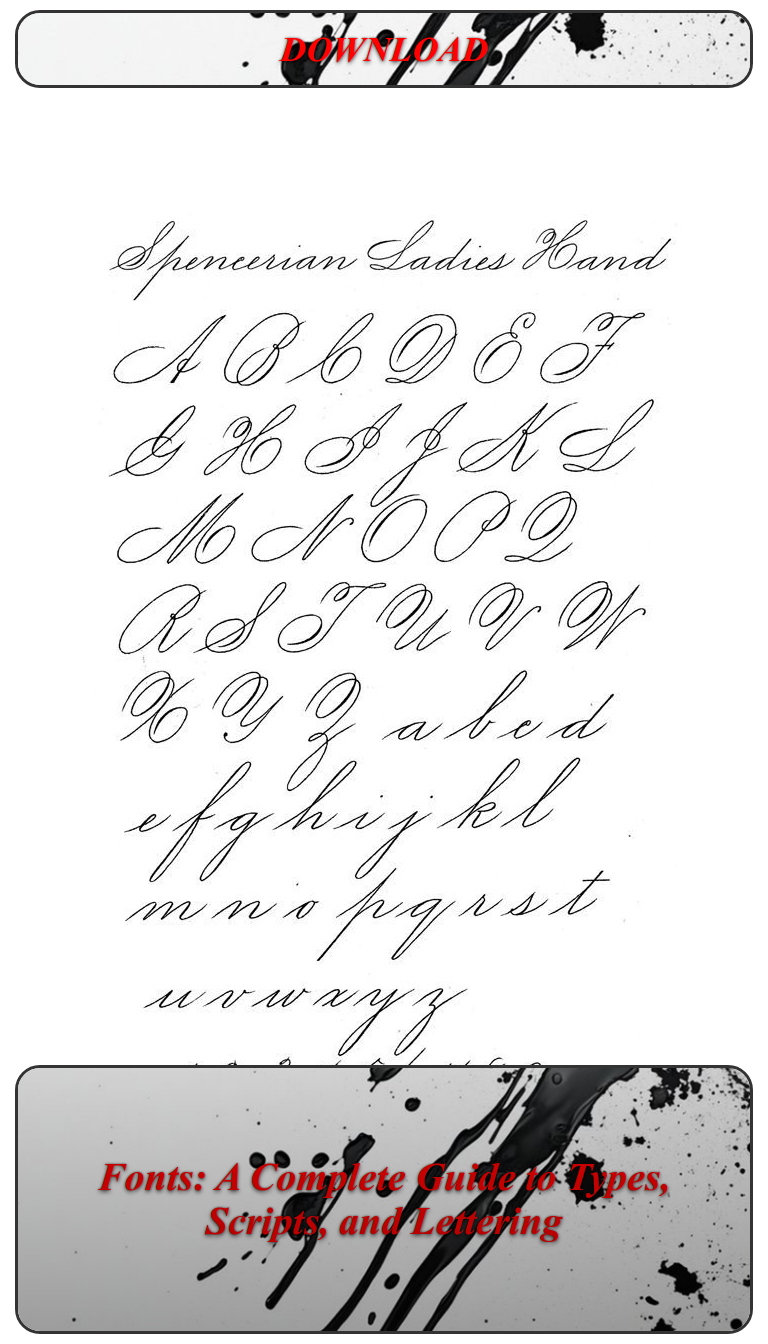 DOWNLOAD
Spencerian Ladies Hand
A B C D E F
G H I J K L
M N O P Q
R S T U V W
X Y Z a b c d
e f g h i j k l
m n o p q r s t
u v w x y z
Fonts: A Complete Guide to Types,
Scripts, and Lettering